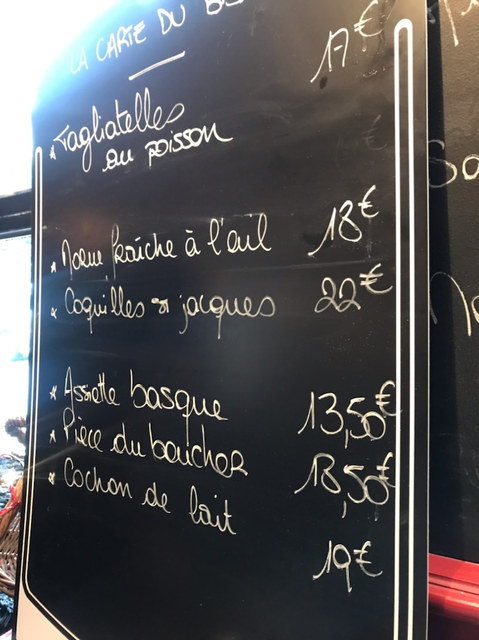 LA CARTE DU
17€
* Tagliatelles
au poisson
* Morue fraîche à l'ail 18€
* Coquilles st jacques 22€
* Assiette basque 13,50€
* Pièce du boucher 18,50€
* Cochon de lait
19€